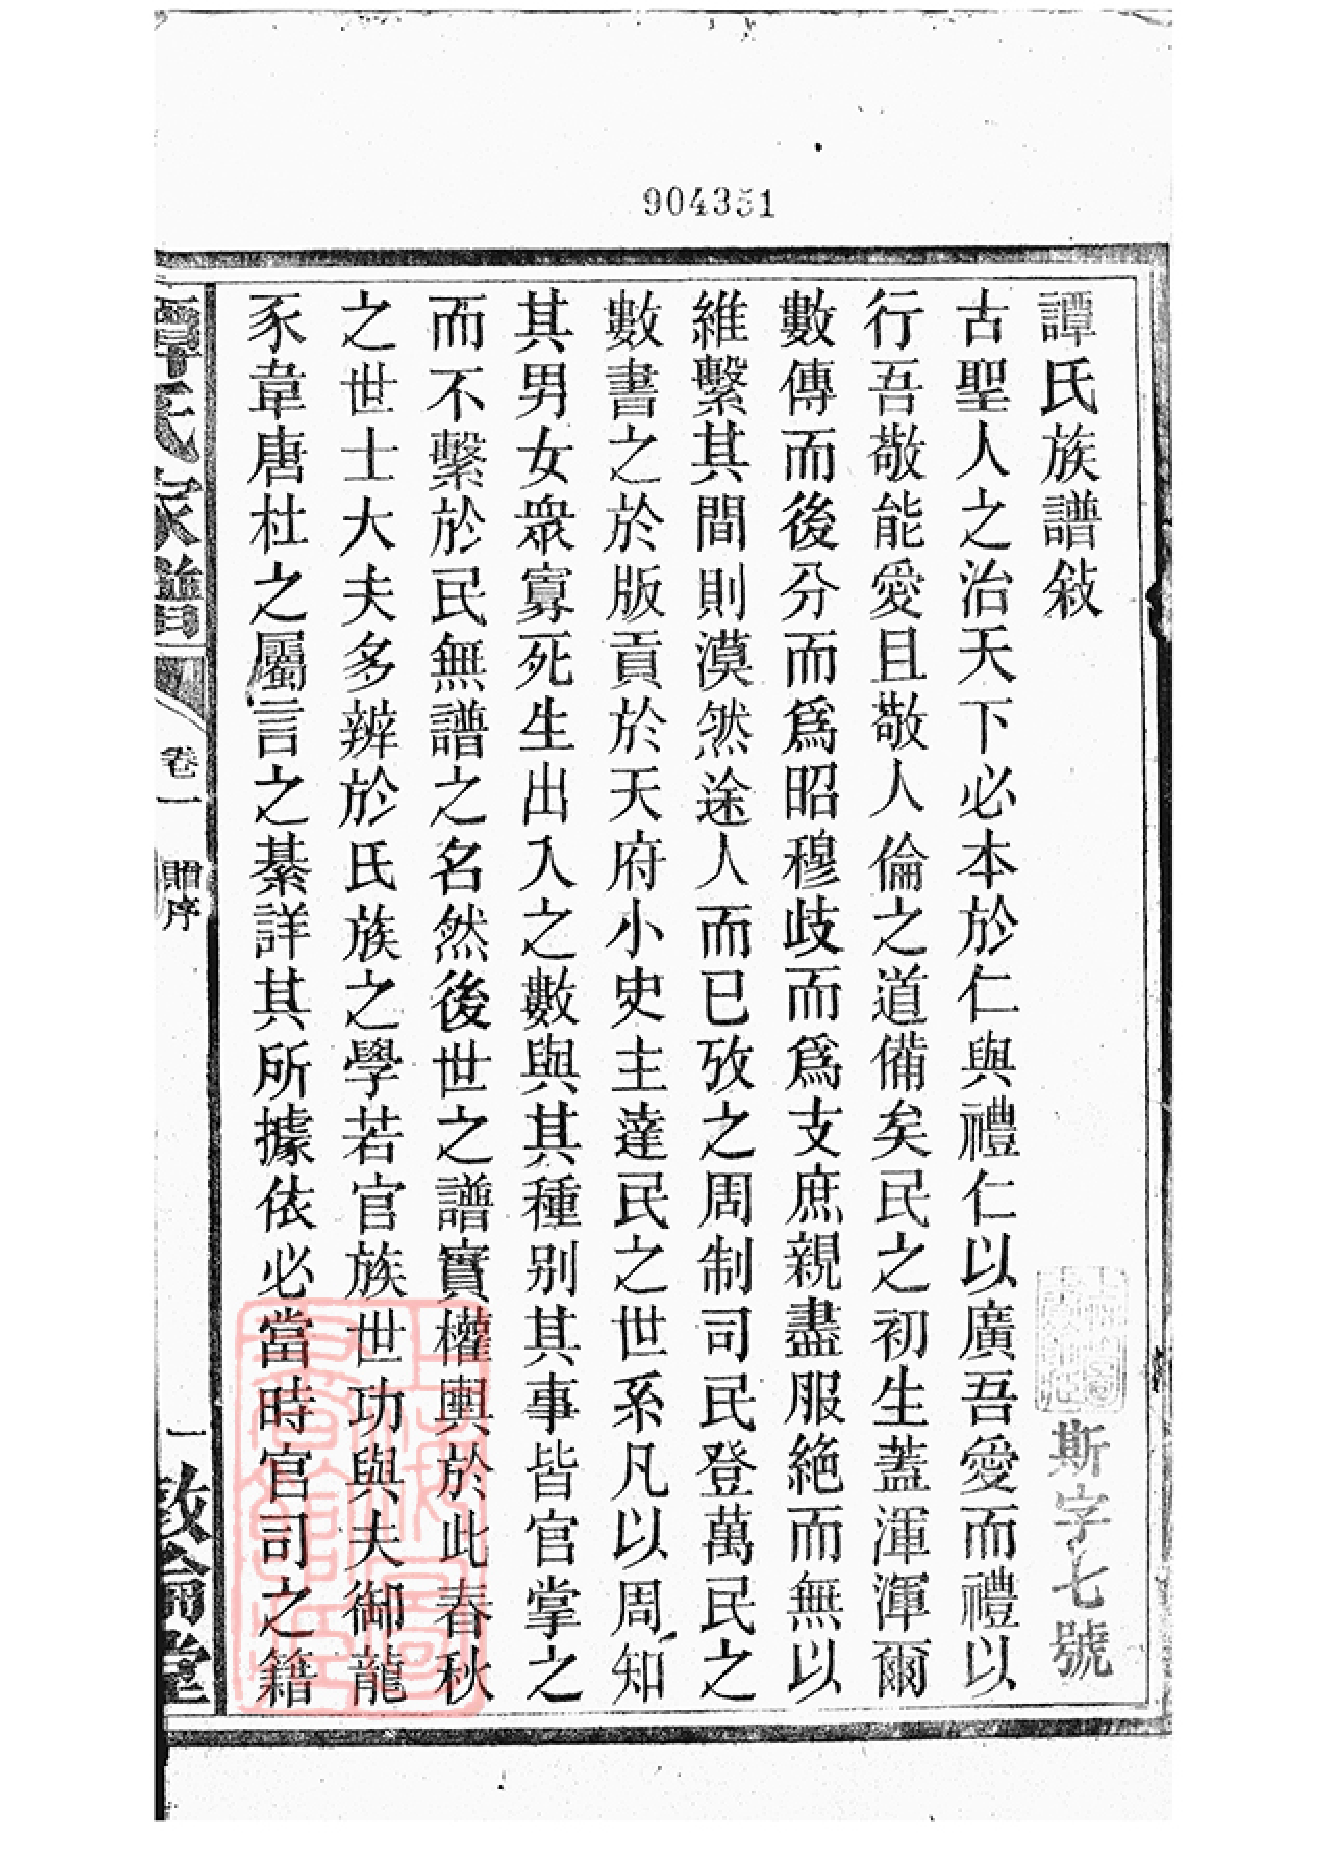 904351
譚氏族譜敍
斯字七號
古聖人之治天下必本於仁與禮仁以廣吾愛而禮以
行吾敬能愛且敬人倫之道備矣民之初生蓋渾渾爾
數傳而後分而爲昭穆歧而爲支庶親盡服絶而無以
維繫其間則漠然途人而已攷之周制司民登萬民之
數書之於版貢於天府小史主達民之世系凡以周知
其男女衆寡死生出入之數與其種別其事皆官掌之
而不繫於民無譜之名然後世之譜實權輿於此春秋
之世士大夫多辨於氏族之學若官族世功與夫御龍
豕韋唐杜之屬言之綦詳其所據依必當時官司之籍
譚氏家譜
卷一
贈序
一
敦倫堂